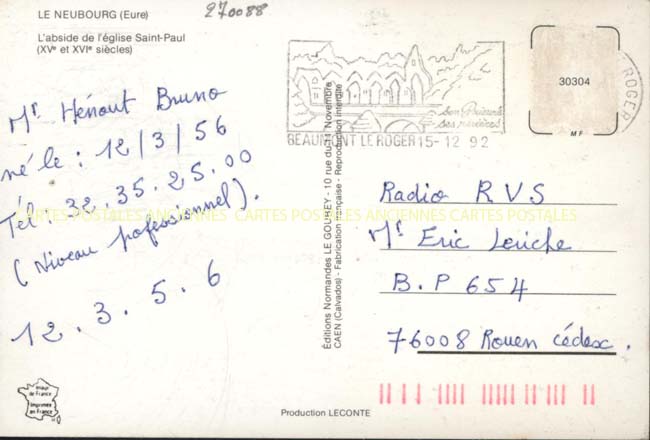 LE NEUBOURG (Eure)
270088
L'abside de l'église Saint-Paul
(XVe et XVIe siècles)
Mr Hénout Bruno
né le : 12/3/56
Tél : 32.35.25.00
(Niveau professionnel).
12.3.5.6
Éditions Normandes LE GOUBEY - 10 rue du 11 Novembre
CAEN (Calvados) - Fabrication Française - Reproduction interdite
son Prieuré
ses rivières
BEAUMONT LE ROGER 15-12 92
ROGER
30304
M F
Radio RVS
Mr Eric Leriche
B.P 654
76008 Rouen Cédex.
CARTES POSTALES ANCIENNES CARTES POSTALES ANCIENNES CARTES POSTALES
Image
de France
Imprimée
en France
Production LECONTE